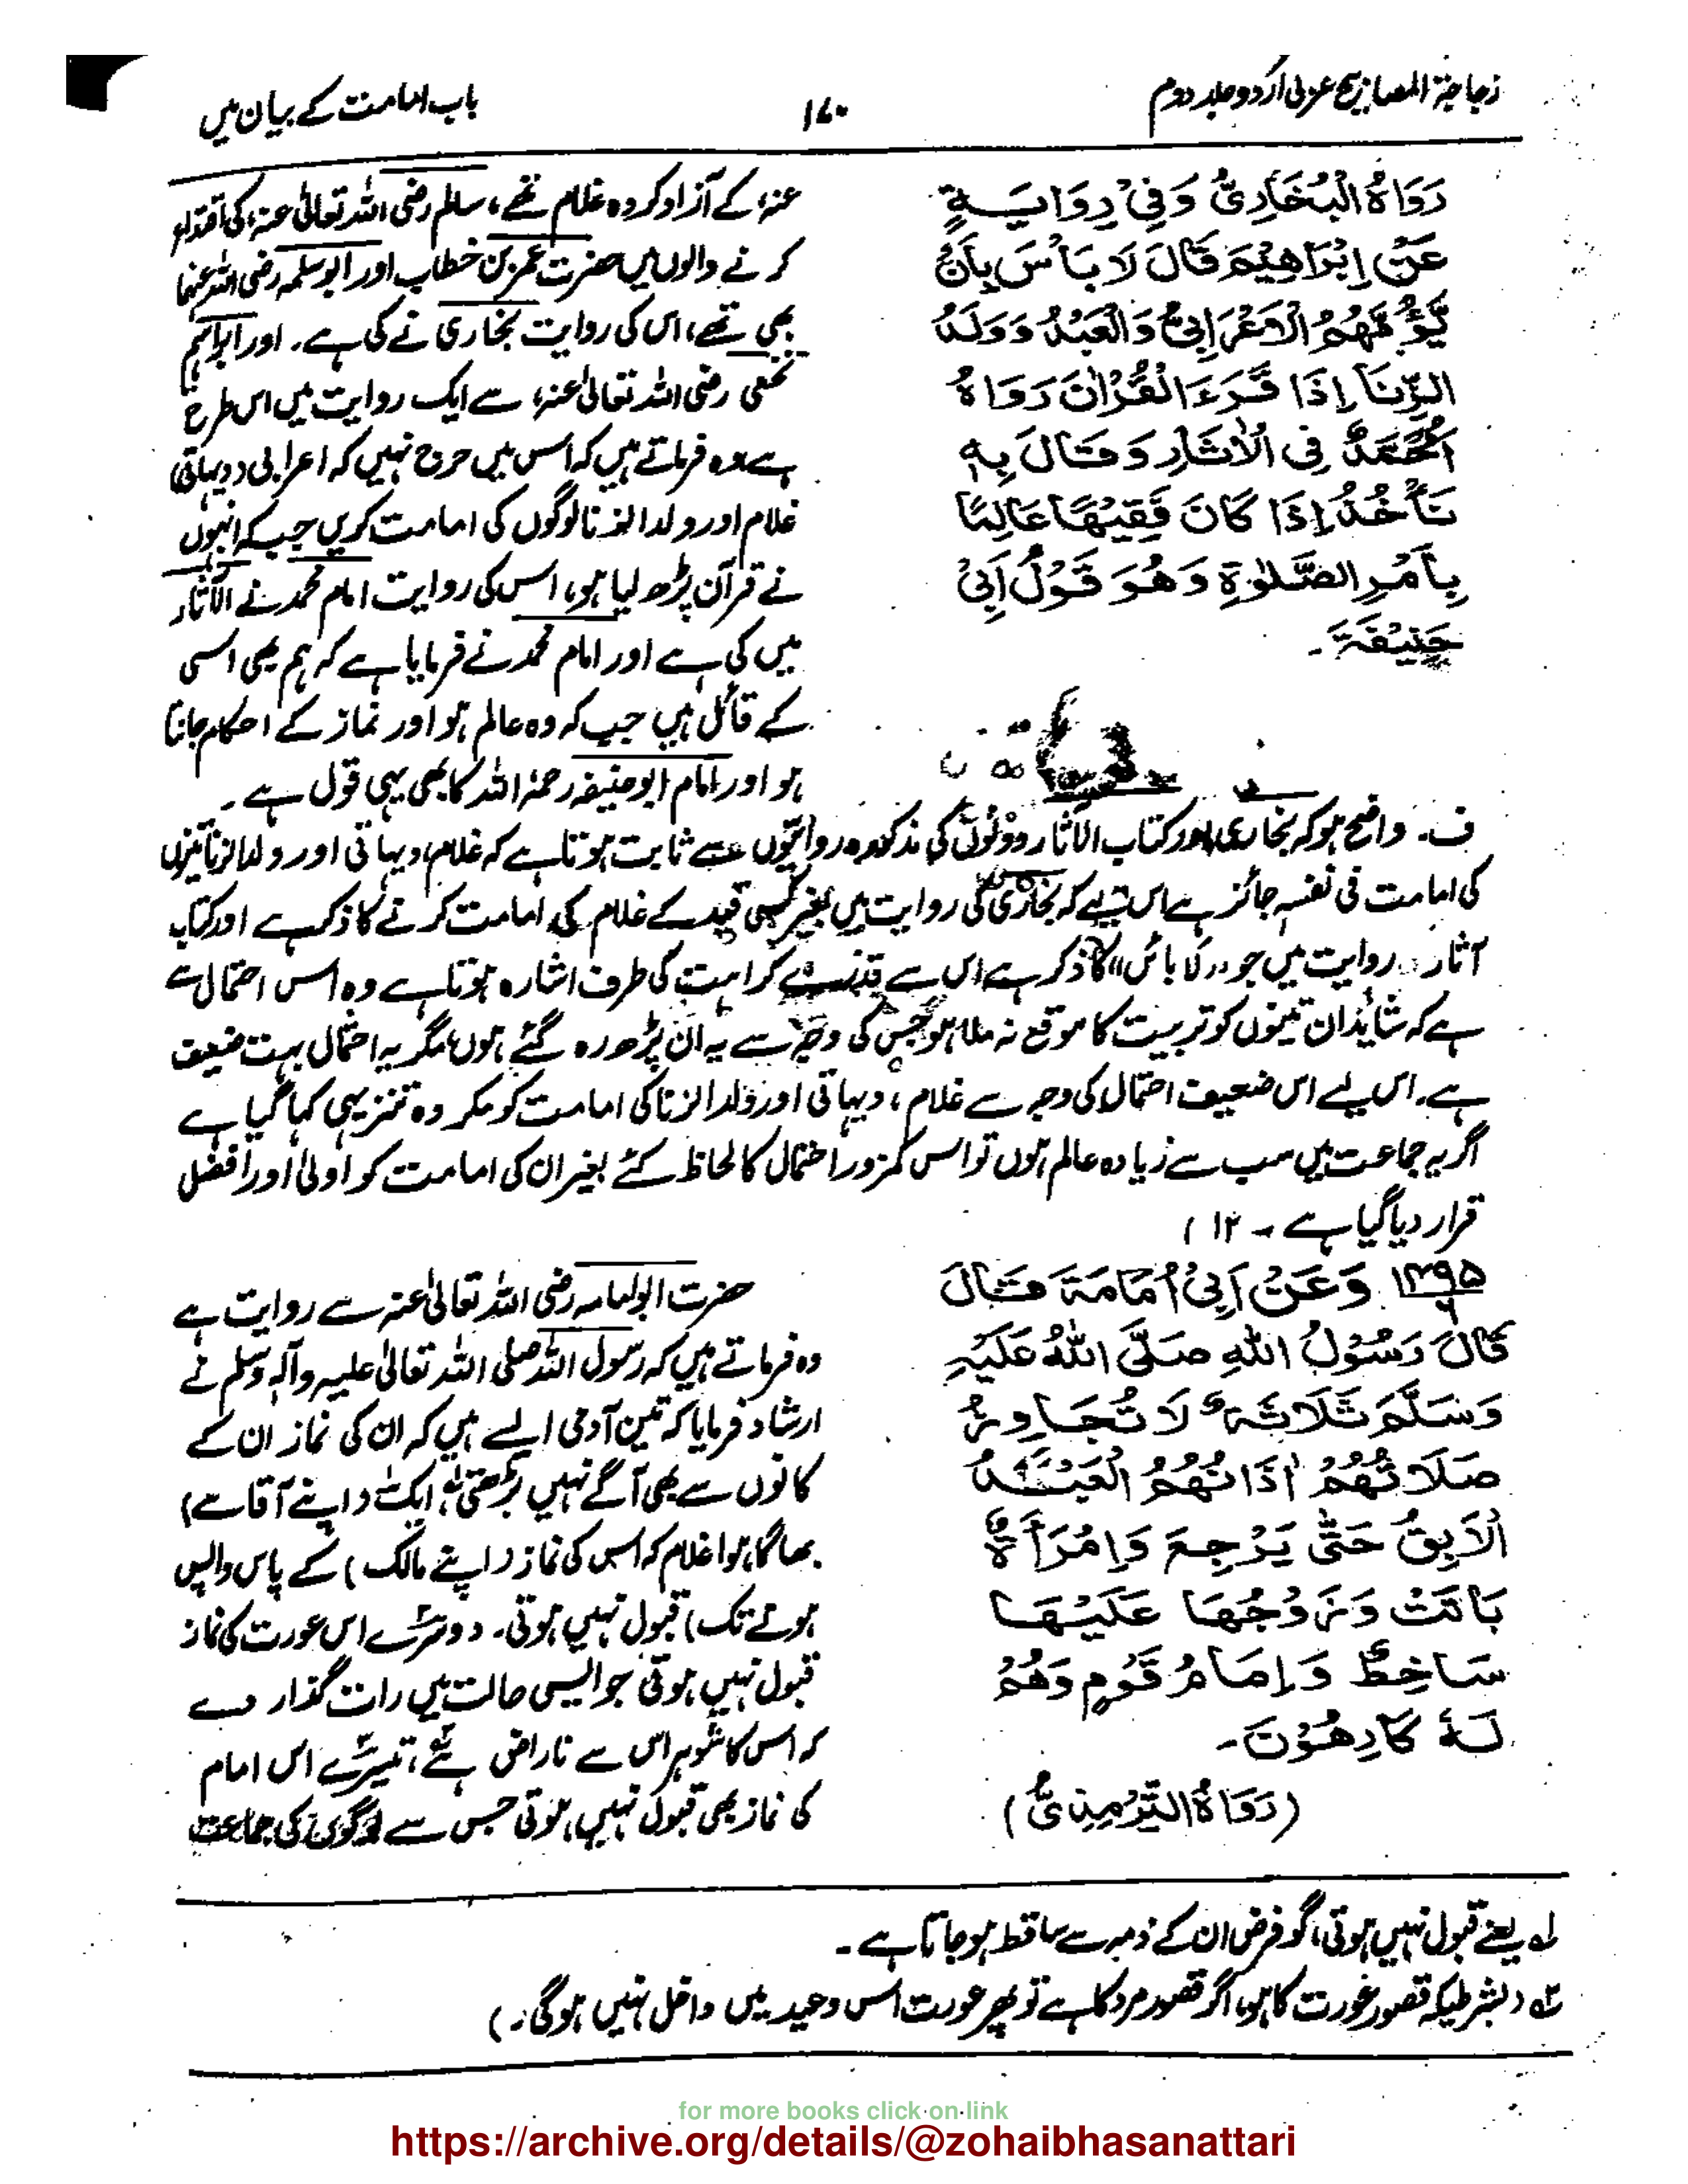 زجاجۃ المصابیح عربی اردو جلد دوم
۱۷۰
باب امامت کے بیان میں
رَوَاهُ الْبُخَارِيُّ وَفِيْ رِوَايَةٍ
عَنْ اِبْرَاهِيْمَ قَالَ لَا بَأْسَ بِاَنْ
يَّؤُمَّهُمُ الْاَعْرَابِيُّ وَالْعَبْدُ وَوَلَدُ
الزِّنَا اِذَا قَرَءَ الْقُرْاٰنَ رَوَاهُ
مُحَمَّدٌ فِي الْاٰثَارِ وَقَالَ بِهٖ
نَأْخُذُ اِذَا كَانَ فَقِيْهًا عَالِمًا
بِاَمْرِ الصَّلٰوةِ وَهُوَ قَوْلُ اَبِيْ
حَنِيْفَةَ۔
عنہ، کے آزاد کردہ غلام تھے، سالم رضی اللہ تعالیٰ عنہ، کی اقتداء
کرنے والوں میں حضرت عمر بن خطاب اور ابوسلمہ رضی اللہ عنہما
بھی تھے، اس کی روایت بخاری نے کی ہے۔ اور ابراہیم
نخعی رضی اللہ تعالیٰ عنہ، سے ایک روایت میں اس طرح
ہے وہ فرماتے ہیں کہ اس میں حرج نہیں کہ اعرابی (دیہاتی)
غلام اور ولد الزنا لوگوں کی امامت کریں جب کہ انہوں
نے قرآن پڑھ لیا ہو، اس کی روایت امام محمد نے الآثار
میں کی ہے اور امام محمد نے فرمایا ہے کہ ہم بھی اسی
کے قائل ہیں جب کہ وہ عالم ہو اور نماز کے احکام جانتا
ہو اور امام ابوحنیفہ رحمۃ اللہ کا بھی یہی قول ہے۔
ف۔ واضح ہو کہ بخاری اور کتاب الآثار دونوں کی مذکورہ روایتوں سے ثابت ہوتا ہے کہ غلام، دیہاتی اور ولد الزنا تینوں
کی امامت فی نفسہٖ جائز ہے اس لیے کہ بخاری کی روایت میں بغیر کسی قید کے غلام کی امامت کرنے کا ذکر ہے اور کتاب
آثار روایت میں جو "لا بأس" کا ذکر ہے اس سے قدرے کراہت کی طرف اشارہ ہوتا ہے وہ اس احتمال سے
ہے کہ شاید ان تینوں کو تربیت کا موقع نہ ملا ہو جس کی وجہ سے یہ ان پڑھ رہ گئے ہوں مگر یہ احتمال بہت ضعیف
ہے۔ اس لیے اس ضعیف احتمال کی وجہ سے غلام، دیہاتی اور ولد الزنا کی امامت کو مکروہ تنزیہی کہا گیا ہے
اگر یہ جماعت میں سب سے زیادہ عالم ہوں تو اس کمزور احتمال کا لحاظ کئے بغیر ان کی امامت کو اولیٰ اور افضل
قرار دیا گیا ہے ۔ ۱۲)
۱۳۹۵/۶ وَعَنْ اَبِيْ اُمَامَةَ قَالَ
قَالَ رَسُوْلُ اللهِ صَلَّى اللهُ عَلَيْهِ
وَسَلَّمَ ثَلَاثَةٌ لَا تُجَاوِزُ
صَلَاتُهُمْ اٰذَانَهُمُ الْعَبْدُ
الْاٰبِقُ حَتّٰى يَرْجِعَ وَامْرَأَةٌ
بَاتَتْ وَزَوْجُهَا عَلَيْهَا
سَاخِطٌ وَاِمَامُ قَوْمٍ وَهُمْ
لَهٗ كَارِهُوْنَ۔
(رَوَاهُ التِّرْمِذِيُّ)
حضرت ابوامامہ رضی اللہ تعالیٰ عنہ سے روایت ہے
وہ فرماتے ہیں کہ رسول اللہ صلی اللہ تعالیٰ علیہ وآلہٖ وسلم نے
ارشاد فرمایا کہ تین آدمی ایسے ہیں کہ ان کی نماز ان کے
کانوں سے بھی آگے نہیں بڑھتی لہ ایک (اپنے آقا سے)
بھاگا ہوا غلام کہ اس کی نماز (اپنے مالک) کے پاس واپس
ہونے تک) قبول نہیں ہوتی۔ دوسرے اس عورت کی نماز
قبول نہیں ہوتی جو ایسی حالت میں رات گذار دے
کہ اس کا شوہر اس سے ناراض ہے ؂۲، تیسرے اس امام
کی نماز بھی قبول نہیں ہوتی جس سے لوگوں کی جماعت
لہ یعنے قبول نہیں ہوتی، گو فرض ان کے ذمہ سے ساقط ہو جاتا ہے۔
؂۲ (بشرطیکہ قصور عورت کا ہو، اگر قصور مرد کا ہے تو پھر عورت اس وعید میں داخل نہیں ہوگی۔)
for more books click on link
https://archive.org/details/@zohaibhasanattari